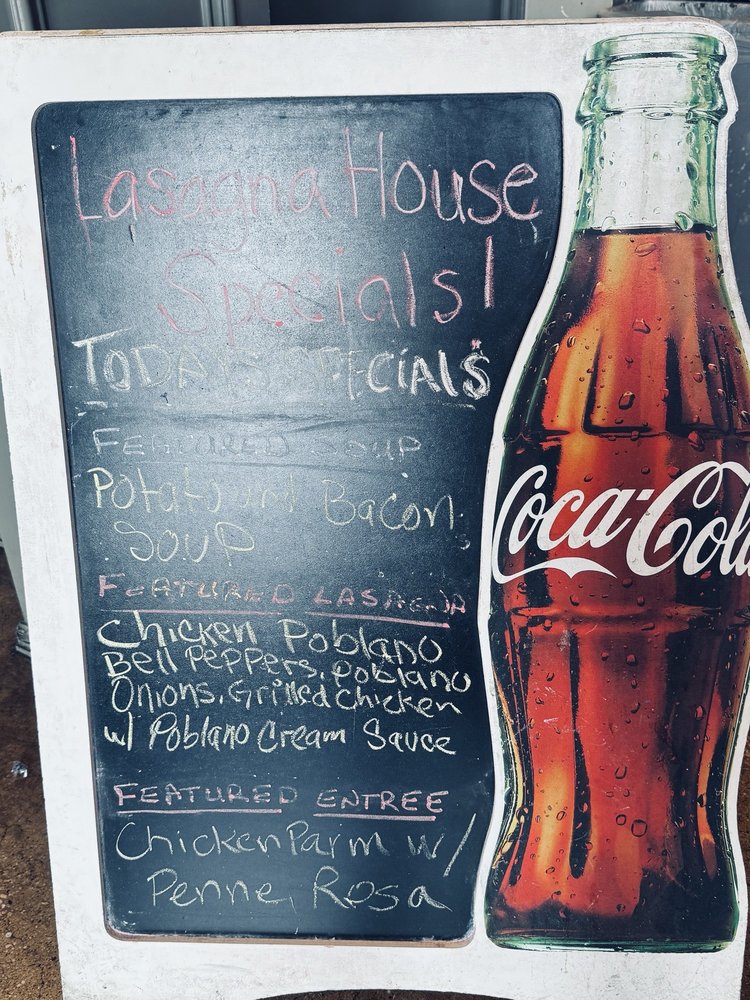 Lasagna House
Specials!
TODAY'S SPECIALS
FEATURED SOUP
Potato and Bacon
SOUP
FEATURED LASAGNA
Chicken Poblano
Bell Peppers, Poblano
Onions, Grilled Chicken
w/ Poblano Cream Sauce
FEATURED ENTREE
Chicken Parm w/
Penne, Rosa
Coca-Cola